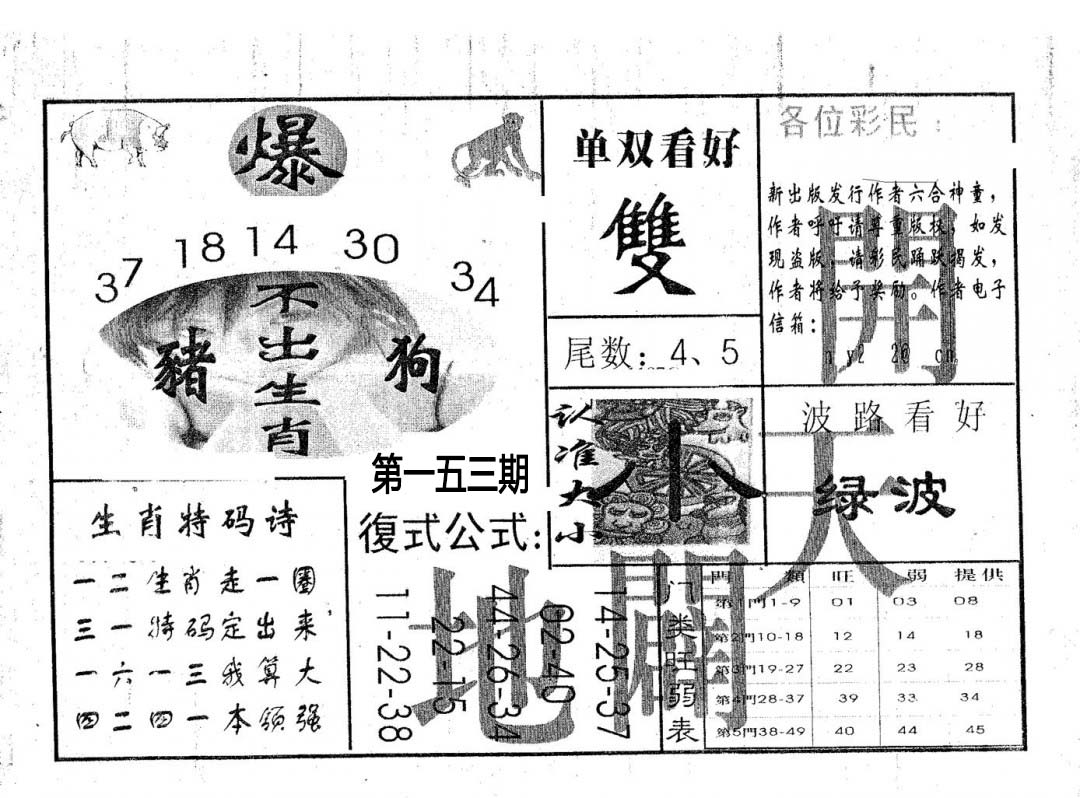 爆
37 18 14 30 34
不出生肖
豬
狗
单双看好
雙
尾数：4、5
各位彩民：
新出版发行作者六合神童，
作者呼吁请尊重版权，如发
现盗版，请彩民踊跃揭发，
作者将给予奖励。作者电子
信箱：
開
认准大小
小
波路看好
绿波
天
第一五三期
復式公式：
11-22-38
22-15
44-26-34
02-40
14-25-37
地
開
生肖特码诗
一二生肖走一圈
三一特码定出来，
一六一三我算大
四二四一本领强
门类旺弱表
門類 旺 弱 提供
第1門1-9 01 03 08
第2門10-18 12 14 18
第3門19-27 22 23 28
第4門28-37 39 33 34
第5門38-49 40 44 45